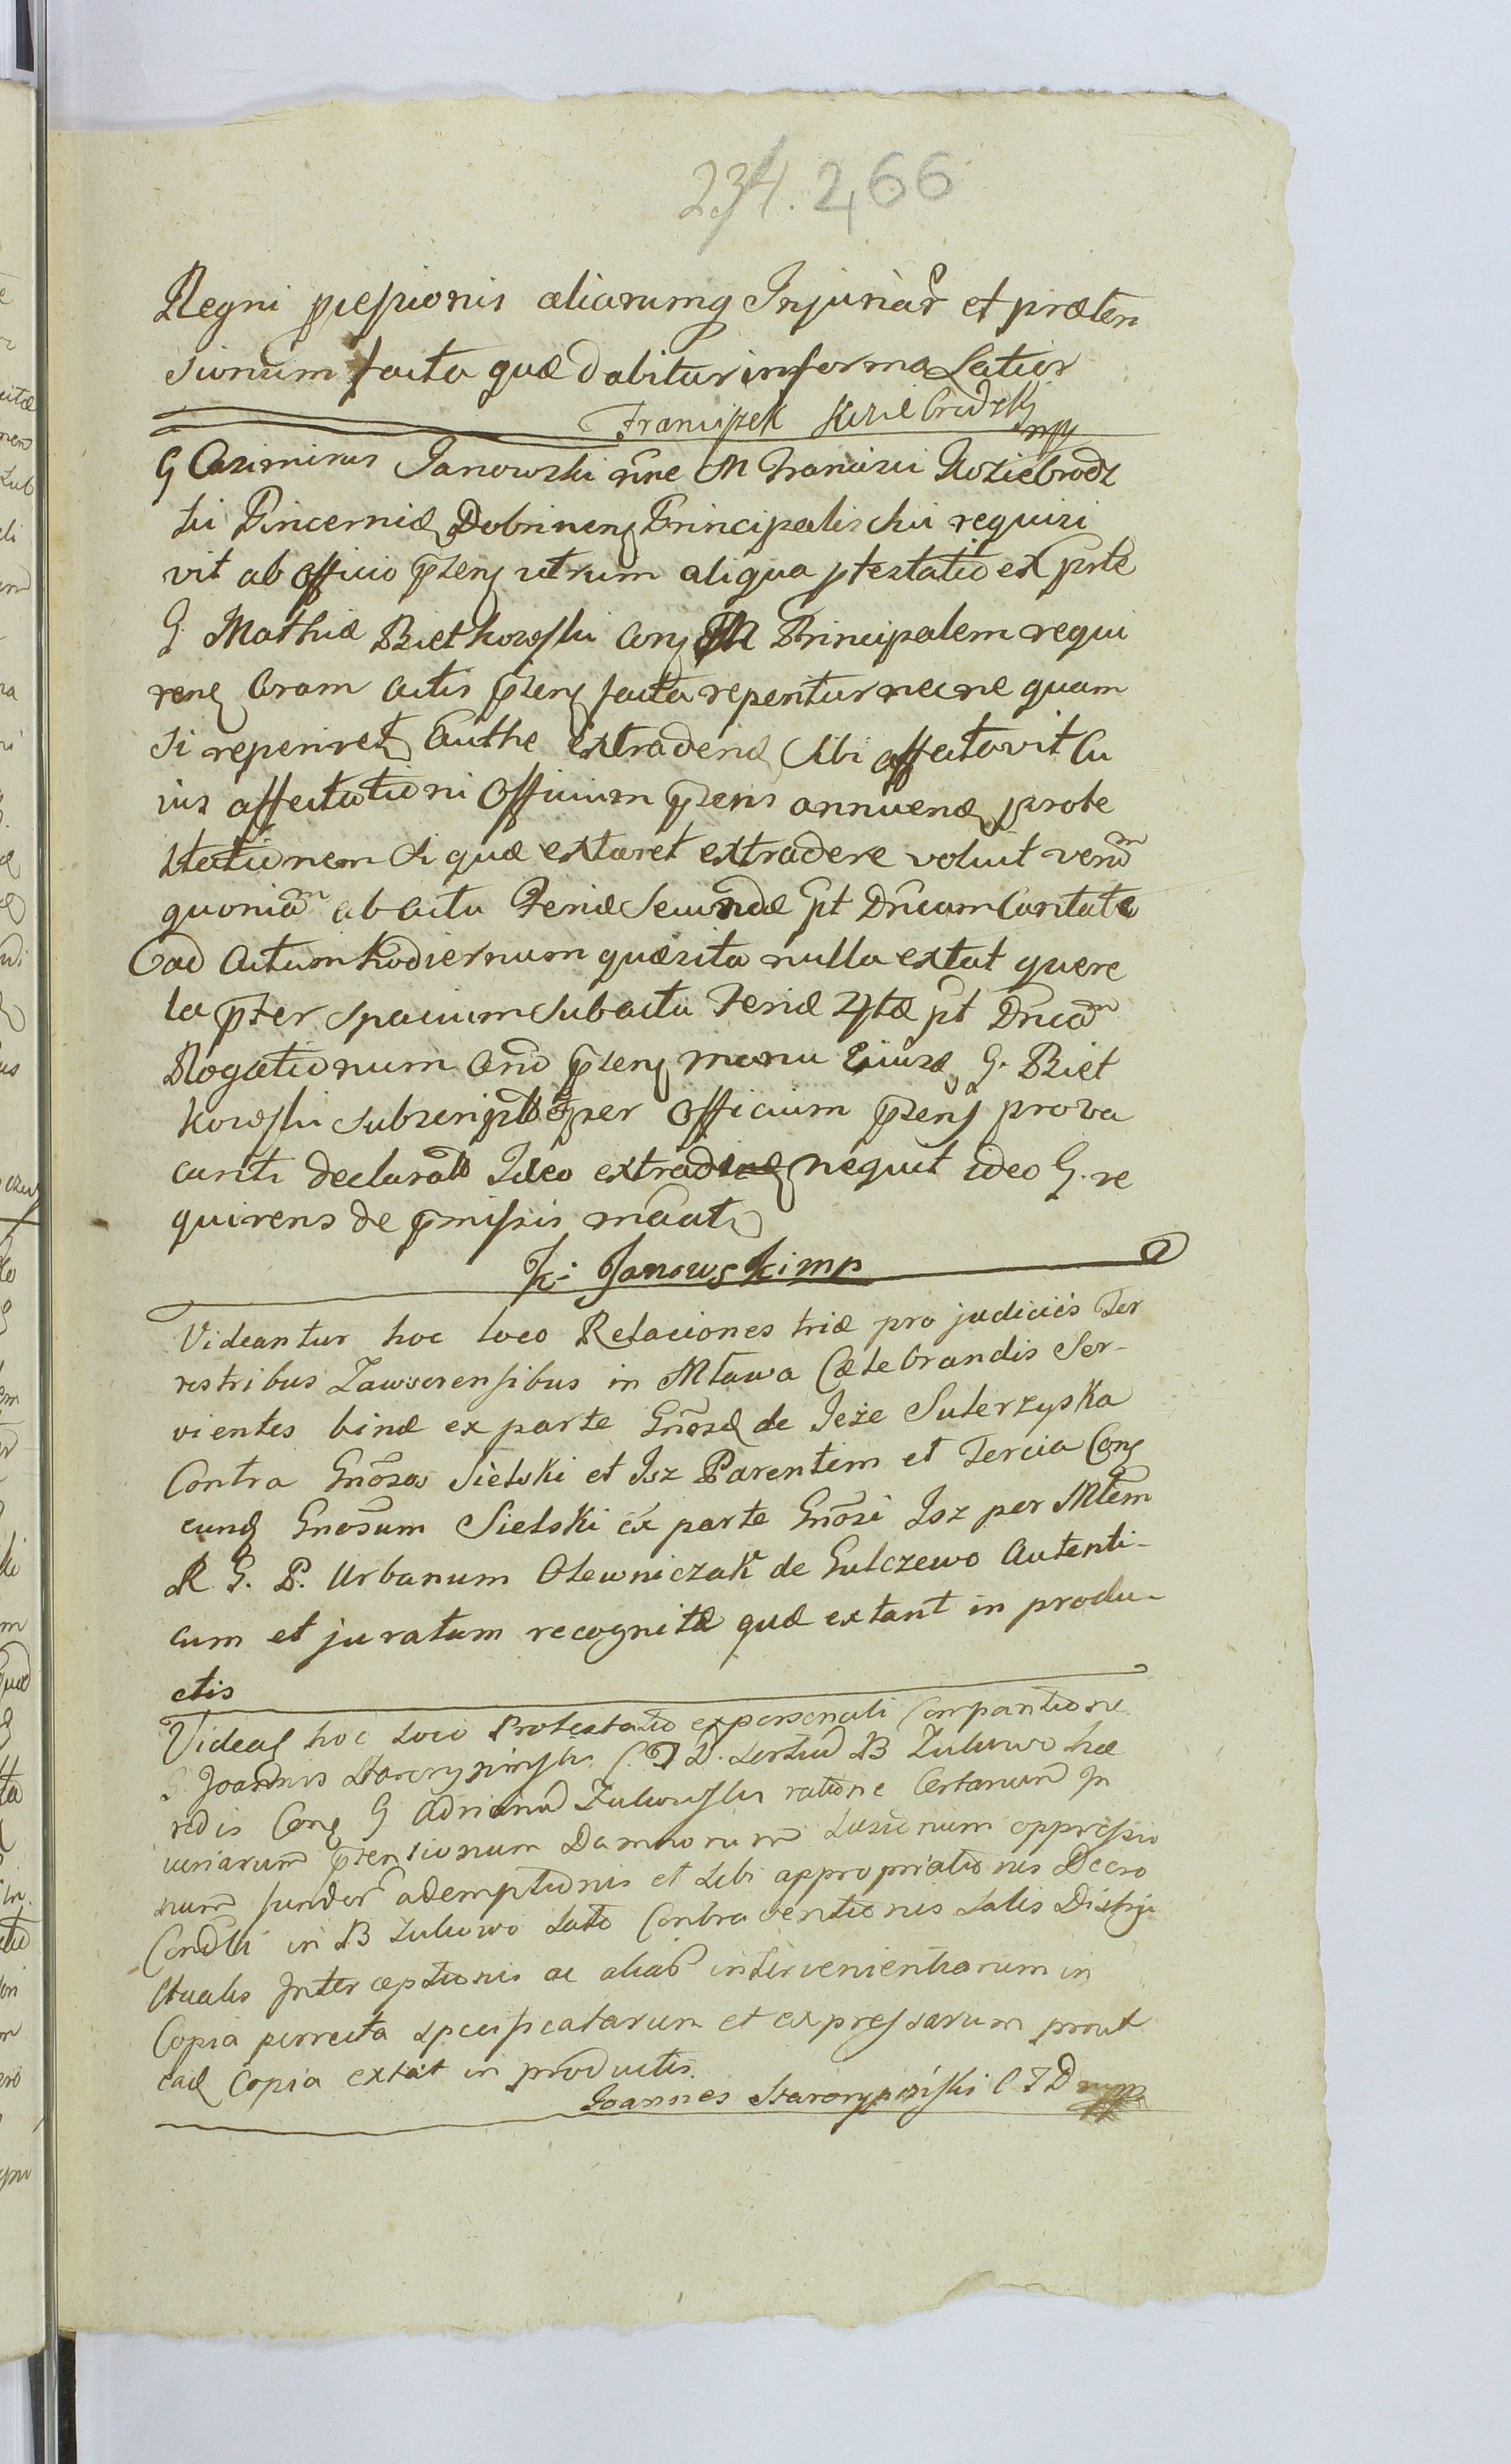 234. 266
Regni pressionis aliarumq Injuriar et præten
sionum facta quæ dabitur in forma Latior
Franciszek Kuzie brodzki mp
G Casimirus Janowski nne M Francisci Koziebrodz
ki Pincernæ Dobrinens Principalis chu requisi
vit ab officio pnzens utrum aliqua ptestatio ex prte
G. Mathiæ Bietkowski cons M Principalem requi
rens coram actis pnzens facta reperitur nec ne quam
si reperiret authe extradend sibi affectavit Cu
ius affectationi Officium pnzens annuens prote
stationem si quæ extaret extradere voluit verum
quoniam ab actu Feriæ Secundæ pt Dnicam Cantate
ad Actum hodiernum quæsita nulla extat quere
la pter spacium sub actu Feriæ 4tæ pt Dnicam
Rogationum Ani pnzens manu Eiusd G. Biet
kowski subscripto per Officium pnzens pro va
canti declarato Ideo extradi nequit ideo G. re
quirens de pmissis maat
K: Janowski mp
Videantur hoc loco Relaciones triæ pro judiciis Ter
restribus Zawscrensibus in Mławа Cælebrandis Ser-
vientes binæ ex parte Gnosæ de Jeże Suterzyska
Contra Gnosos Sielski et Isz Parentem et Tercia Con
eund Gnosum Sielski ex parte Gnosi Isz per Mtem
R G. P. Urbanum Olewniczak de Gulczewo Autenti-
cum et juratum recognitæ quæ extant in produ-
ctis
Videat hoc loco Protestatio ex personali Comparitione
G Joannis Starorypinski C. T D. Sortium B Zulowo hæ
redis Cons G Adrianum Zulowski ratione Certarum In
iuriarum ptensionum Damnorum Lusionum oppressio
num fundor ademptionis et sibi appropriationis Decro
Condli in B Zulowo lato Contraventionis Salis Distri
ctualis Interceptionis ac aliar intervenientiarum in
Copia porrecta specificatarum et expressarum prout
ead Copia extat in productis.
Joannes Staroryp​inski C T D mpp